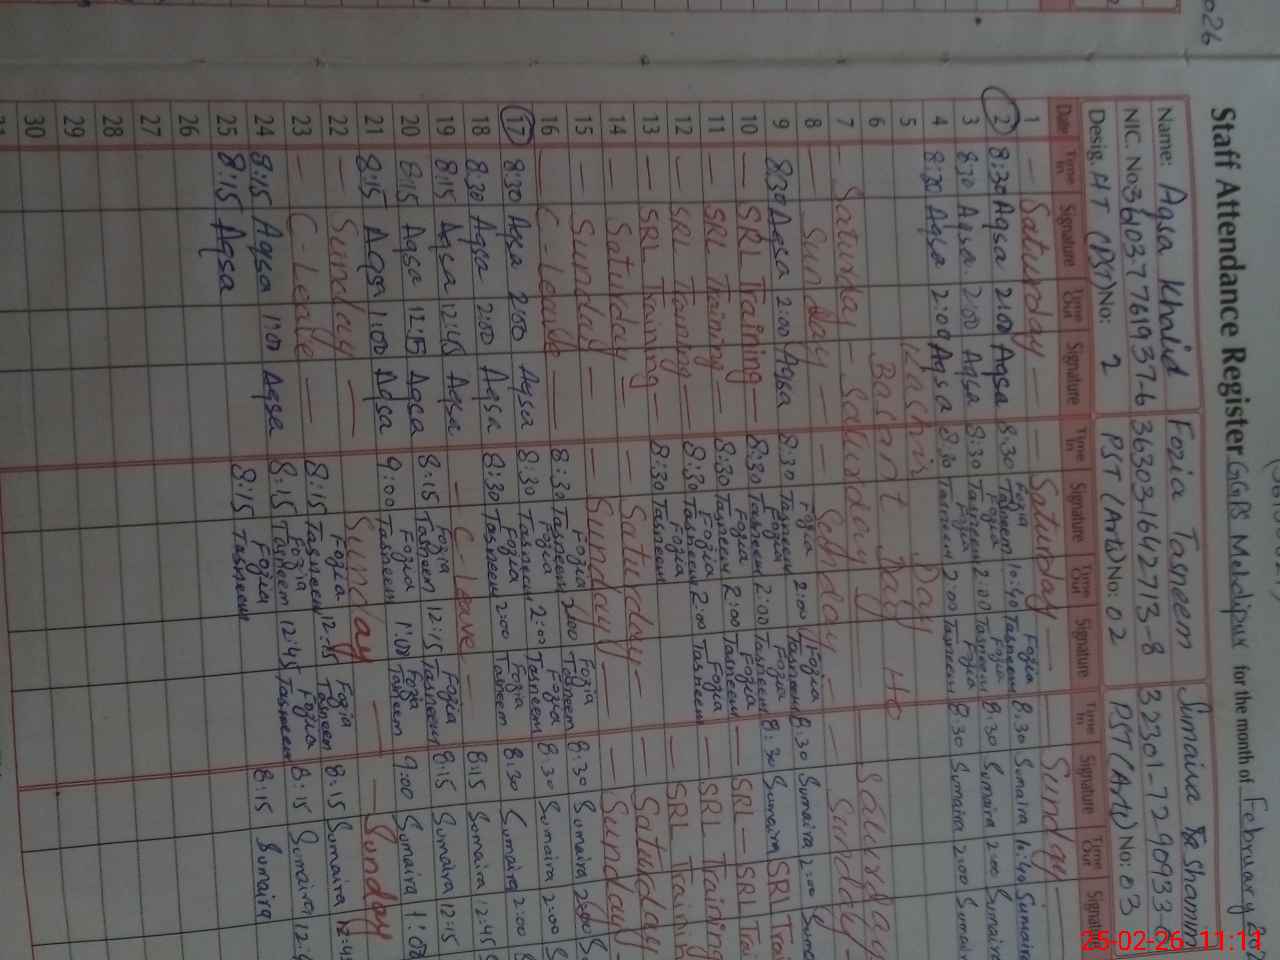 Staff Attendance Register GGPS for the month of February
Name: Aqsa Khalid Fozia Tasneem Sumaira Shamim
NIC. No 36303-1642713-8
Desig. No: 2 PST (Arts) No: 02 PST (Arts) No: 03
Date Time In Signature Time Out Signature Time In Signature Time Out Signature Time In Signature Time Out Signature
1 — Saturday — — Saturday — Sunday —
2 8:30 Aqsa 2:00 Aqsa 8:30 Fozia Tasneem 10:40 Fozia Tasneem 8:30 Sumaira 10:40 Sumaira
3 8:30 Aqsa 2:00 Aqsa 8:30 Fozia Tasneem 2:00 Fozia Tasneem 8:30 Sumaira 2:00 Sumaira
4 8:30 Aqsa 2:00 Aqsa 8:30 Fozia Tasneem 2:00 Fozia Tasneem 8:30 Sumaira 2:00 Sumaira
5 Kashmir Day
6 Basant Day
7 — Saturday — Saturday Saturday
8 — Sunday — — Sunday — Sunday —
9 8:30 Aqsa 2:00 Aqsa 8:30 Fozia Tasneem 2:00 Fozia Tasneem 8:30 Sumaira 2:00
10 — SRL Training — 8:30 Fozia Tasneem 2:00 Fozia Tasneem 8:30 Sumaira SRL
11 — SRL Training — 8:30 Fozia Tasneem 2:00 Fozia Tasneem — SRL — SRL
12 — SRL Training — 8:30 Fozia Tasneem 2:00 Fozia Tasneem — SRL Training
13 — SRL Training — 8:30 Fozia Tasneem — SRL
14 — Saturday — — Saturday — — Saturday
15 — Sunday — — Sunday — — Sunday
16 — C-Leave — 8:30 Fozia Tasneem 2:00 Fozia Tasneem 8:30 Sumaira 2:00
17 8:30 Aqsa 2:00 Aqsa 8:30 Fozia Tasneem 2:00 Fozia Tasneem 8:30 Sumaira 2:00
18 8:30 Aqsa 2:00 Aqsa 8:30 Fozia Tasneem 2:00 Fozia Tasneem 8:30 Sumaira 2:00
19 8:15 Aqsa 12:45 Aqsa — C-Leave — 8:15 Sumaira 12:45
20 8:15 Aqsa 12:15 Aqsa 8:15 Fozia Tasneem 12:15 Fozia Tasneem 8:15 Sumaira 12:15
21 8:15 Aqsa 1:00 Aqsa 9:00 Fozia Tasneem 1:00 Fozia Tasneem 9:00 Sumaira 1:00
22 — Sunday — Sunday — — Sunday
23 — C-Leave — 8:15 Fozia Tasneem Fozia Tasneem 8:15 Sumaira 12:45
24 8:15 Aqsa 1:00 Aqsa 8:15 Fozia Tasneem 12:45 Fozia Tasneem 8:15 Sumaira
25 8:15 Aqsa 8:15 Fozia Tasneem 8:15 Sumaira
26
27
28
29
30
25-02-26 11:11